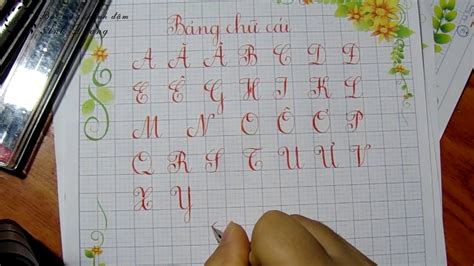 đậm
Bảng chữ cái
A Ă Â B C D Đ
E Ê G H I K L
M N O Ô Ơ P
Q R S T U Ư V
X Y